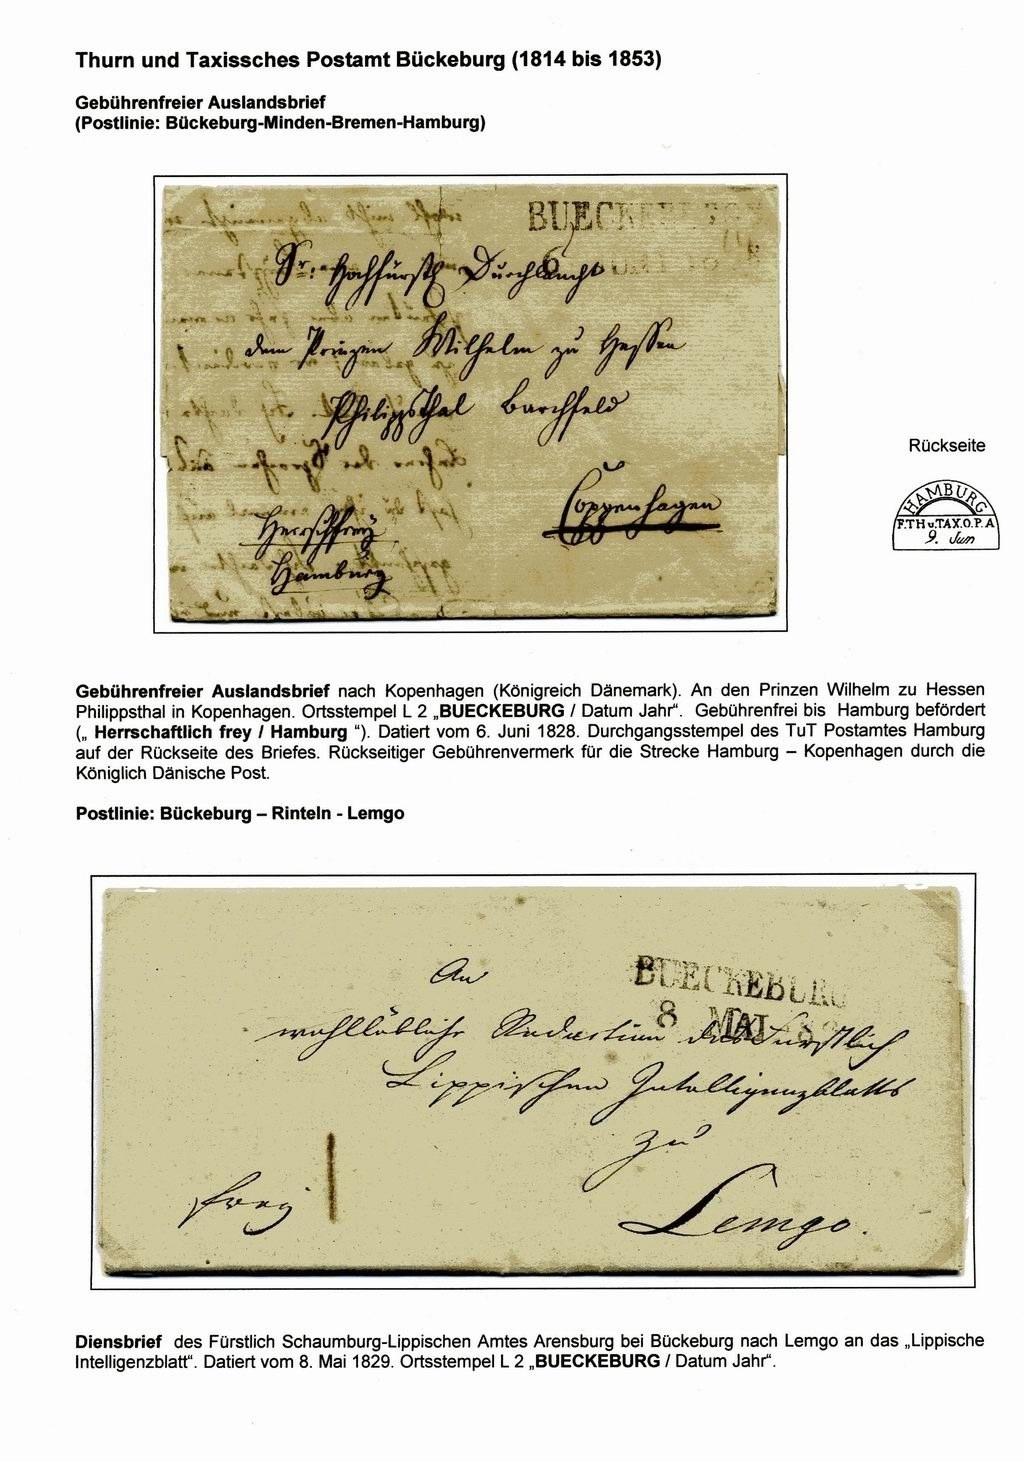 Thurn und Taxissches Postamt Bückeburg (1814 bis 1853)
Gebührenfreier Auslandsbrief
(Postlinie: Bückeburg-Minden-Bremen-Hamburg)
BUECKEBURG
6
Sr: Hochfürstl Durchlaucht
dem Prinzen Wilhelm zu Hessen
Philippsthal Barchfeld
Coppenhagen
Herrschfrey
Hamburg
Rückseite
HAMBURG
F.TH u.TAX.O.P.A
9. Jun
Gebührenfreier Auslandsbrief nach Kopenhagen (Königreich Dänemark). An den Prinzen Wilhelm zu Hessen
Philippsthal in Kopenhagen. Ortsstempel L 2 „BUECKEBURG / Datum Jahr“. Gebührenfrei bis Hamburg befördert
(„ Herrschaftlich frey / Hamburg “). Datiert vom 6. Juni 1828. Durchgangsstempel des TuT Postamtes Hamburg
auf der Rückseite des Briefes. Rückseitiger Gebührenvermerk für die Strecke Hamburg – Kopenhagen durch die
Königlich Dänische Post.
Postlinie: Bückeburg – Rinteln - Lemgo
BUECKEBURG
8 MAI
An
wohllöbliche Redaction des Fürstlich
Lippischen Intelligenzblatts
zu
Lemgo.
frey
Diensbrief des Fürstlich Schaumburg-Lippischen Amtes Arensburg bei Bückeburg nach Lemgo an das „Lippische
Intelligenzblatt“. Datiert vom 8. Mai 1829. Ortsstempel L 2 „BUECKEBURG / Datum Jahr“.